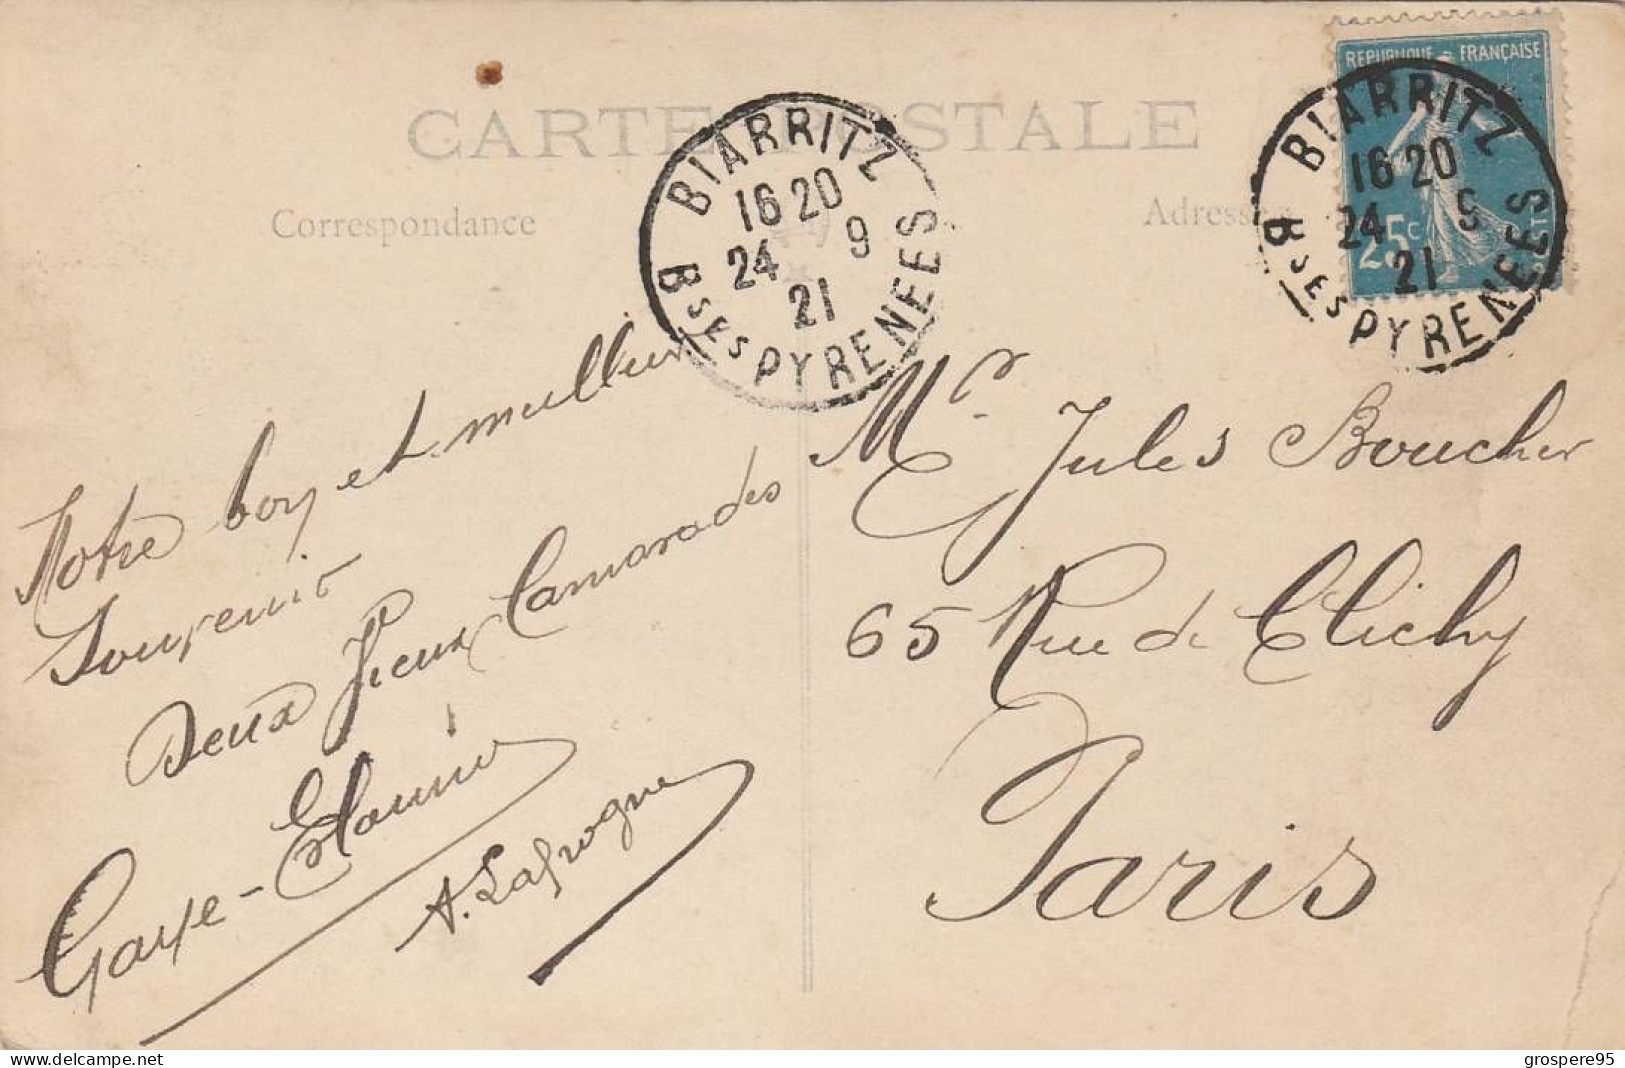 CARTE POSTALE
Correspondance
Adresse
REPUBLIQUE FRANÇAISE
25c
POSTES
BIARRITZ
16 20
24 9
21
BSES PYRENEES
BIARRITZ
16 20
24 9
21
BSES PYRENEES
Notre bon et meilleur
Souvenir
Deux Vieux Camarades
A. Lafrogne
Mr Jules Boucher
65 Rue de Clichy
Paris
www.delcampe.net
grospere95